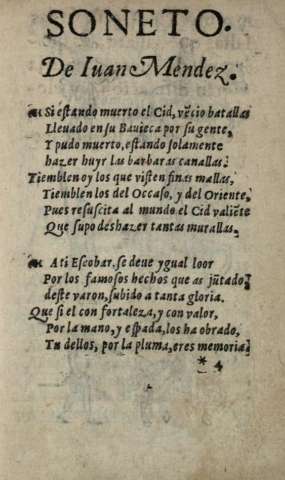 SONETO.
De Iuan Mendez.
Si estando muerto el Cid, vẽcio batallas
Lleuado en su Bauieca por su gente,
Y pudo muerto, estando solamente
hazer huyr las barbaras canallas:
Tiemblen oy los que visten finas mallas,
Tiemblen los del Occaso, y del Oriente,
Pues resuscita al mundo el Cid valiẽte
Que supo deshazer tantas murallas.
A ti Escobar, se deue ygual loor
Por los famosos hechos que as jũtado
deste varon, subido a tanta gloria.
Que si el con fortaleza, y con valor,
Por la mano, y espada, los ha obrado,
Tu dellos, por la pluma, eres memoria.
* 4